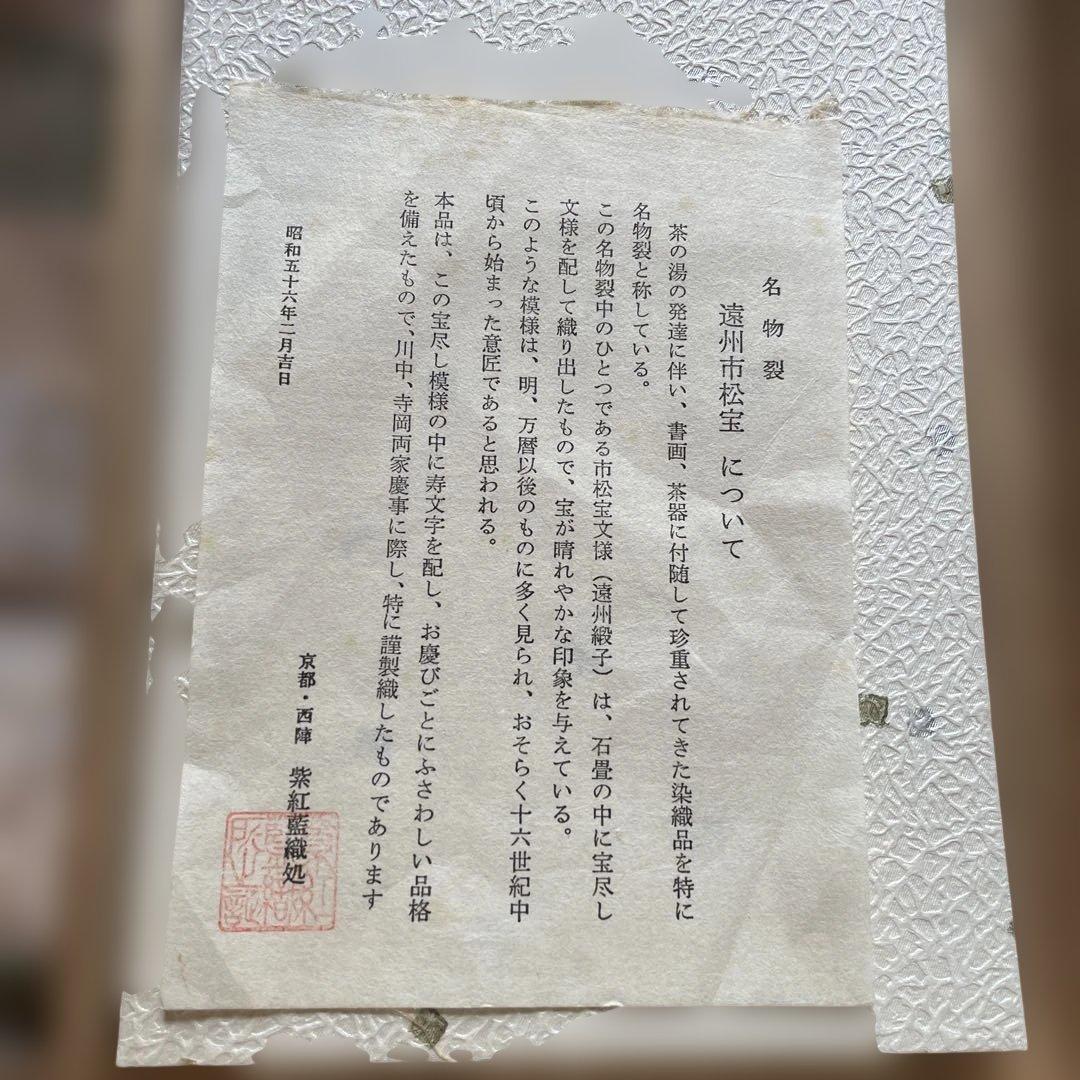 名物裂
遠州市松宝 について
茶の湯の発達に伴い、書画、茶器に付随して珍重されてきた染織品を特に
名物裂と称している。
この名物裂中のひとつである市松宝文様（遠州緞子）は、石畳の中に宝尽し
文様を配して織り出したもので、宝が晴れやかな印象を与えている。
このような模様は、明、万暦以後のものに多く見られ、おそらく十六世紀中
頃から始まった意匠であると思われる。
本品は、この宝尽し模様の中に寿文字を配し、お慶びごとにふさわしい品格
を備えたもので、川中、寺岡両家慶事に際し、特に謹製織したものであります
昭和五十六年二月吉日
京都・西陣 紫紅藍織処